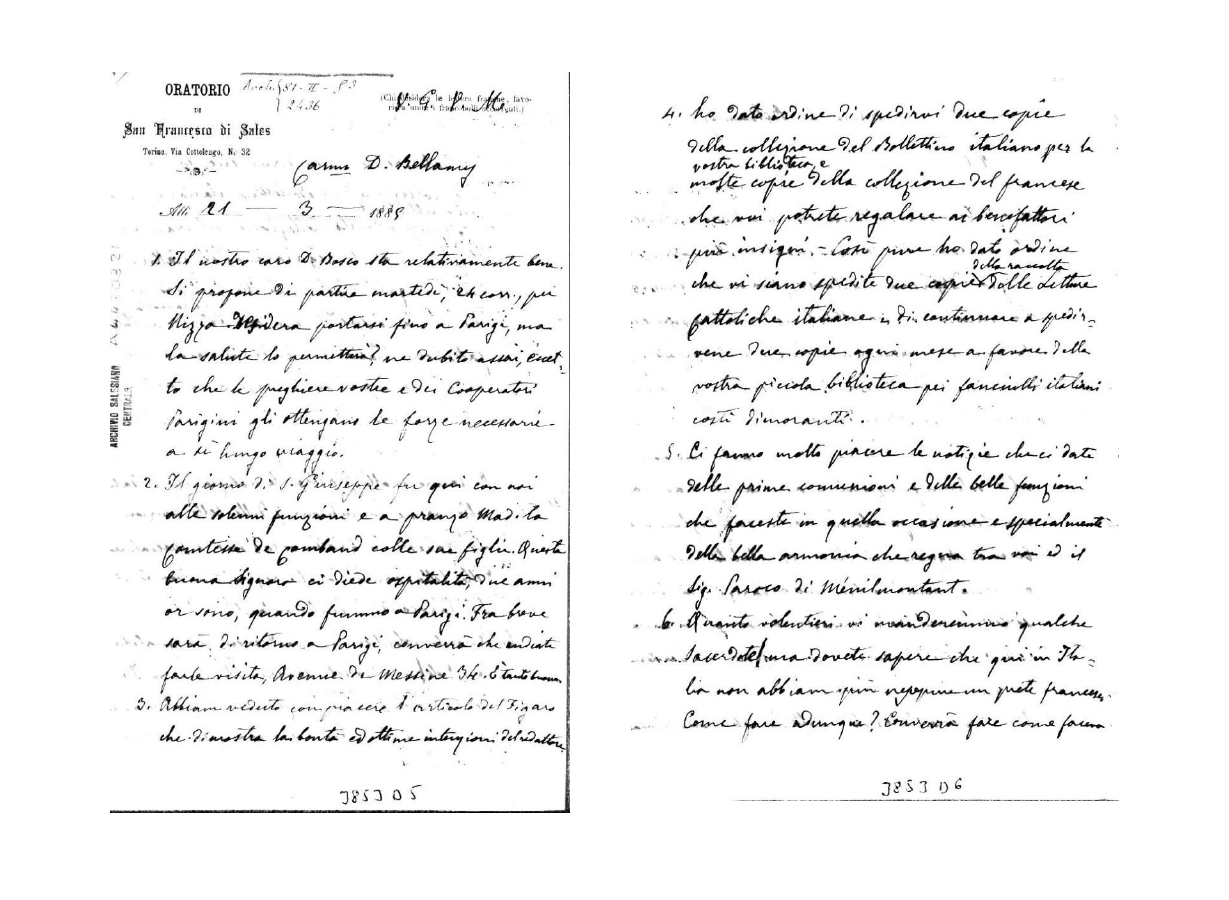 ORATORIO
DI
San Francesco di Sales
Torino, Via Cottolengo, N. 32
2436
(Chi desidera le lettere franche, favo-
Carmo D. Bellamy
Alli 21 — 3 — 1885
1. Il nostro caro D. Bosco sta relativamente bene.
Si propone di partire martedì, 24 corr., per
Nizza. Desidera portarsi fino a Parigi, ma
la salute lo permetterà? ne dubito assai, eccet-
to che le preghiere vostre e dei Cooperatori
Parigini gli ottengano le forze necessarie
a sì lungo viaggio.
2. Il giorno di S. Giuseppe fu qui con noi
alle solenni funzioni e a pranzo Mad. la
Comtesse de Combaud colle sue figlie. Questa
buona Signora ci diede ospitalità, due anni
or sono, quando fummo a Parigi. Fra breve
sarà di ritorno a Parigi, converrà che andiate
farle visita, Avenue de Messine 34. È tanto buona
3. Abbiam veduto con piacere l'articolo del Figaro
che dimostra la bontà ed ottime intenzioni del redattore
ARCHIVIO SALESIANO
CENTRALE
3853 D5
4. ho dato ordine di spedirvi due copie
della collezione del Bollettino italiano per la
vostra biblioteca, e
molte copie della collezione del francese
che voi potrete regalare ai benefattori
più insigni. - Così pure ho dato ordine
della raccolta
che vi siano spedite due copie delle Letture
Cattoliche italiane e di continuare a spedir-
vene due copie ogni mese a favore della
vostra piccola biblioteca pei fanciulli italiani
costì dimoranti.
5. Ci fanno molto piacere le notizie che ci date
delle prime comunioni e delle belle funzioni
che faceste in quella occasione e specialmente
della bella armonia che regna tra voi ed il
Sig. Paroco di Ménilmontant.
6. Quanto volentieri vi manderemmo qualche
Sacerdote! ma dovete sapere che qui in Ita-
lia non abbiam più neppure un prete francese.
Come fare adunque? Converrà fare come faceva
3853 D6